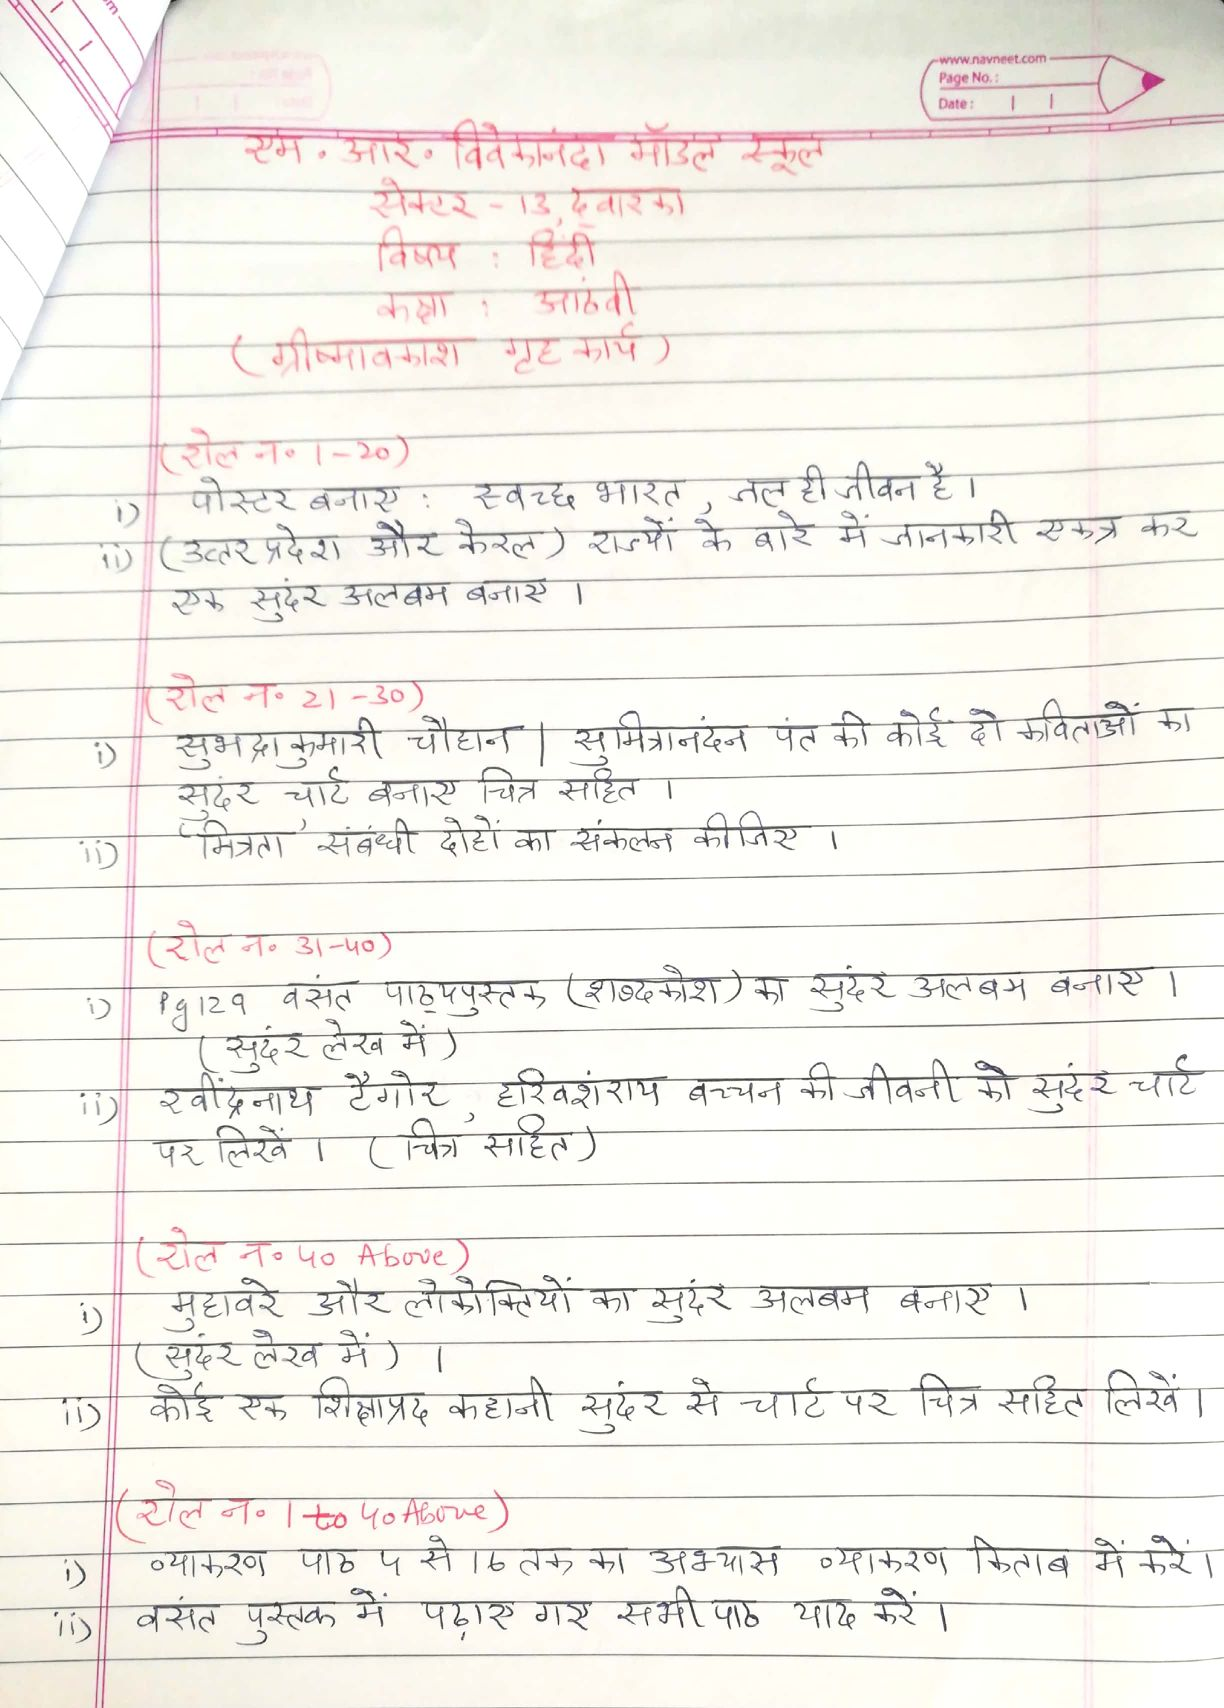 www.navneet.com
Page No. :
Date :
एम. आर. विवेकानंदा मॉडल स्कूल
सेक्टर - 13, द्वारका
विषय : हिंदी
कक्षा : आठंवी
(ग्रीष्मावकाश गृह कार्य)
(रोल न॰ 1-20)
i) पोस्टर बनाए : स्वच्छ भारत, जल ही जीवन है।
ii) (उत्तर प्रदेश और केरल) राज्यों के बारे में जानकारी एकत्र कर
एक सुदंर अलबम बनाए।
(रोल न॰ 21-30)
i) सुभद्रा कुमारी चौहान | सुमित्रानदंन पंत की कोई दो कविताओं का
सुदंर चार्ट बनाए चित्र सहित।
ii) 'मित्रता' संबंधी दोहों का संकलन कीजिए।
(रोल न॰ 31-40)
i) Pg 129 वसंत पाठ्यपुस्तक (शब्दकोश) का सुदंर अलबम बनाए।
(सुदंर लेख में)
ii) रवींद्रनाथ टैगोर, हरिवशंराय बच्चन की जीवनी को सुदंर चार्ट
पर लिखें। (चित्र सहित)
(रोल न॰ 40 Above)
i) मुहावरे और लोकोक्तियों का सुदंर अलबम बनाए।
(सुदंर लेख में)।
ii) कोई एक शिक्षाप्रद कहानी सुदंर से चार्ट पर चित्र सहित लिखें।
(रोल न॰ 1 to 40 Above)
i) व्याकरण पाठ 5 से 16 तक का अभ्यास व्याकरण किताब में करें।
ii) वसंत पुस्तक में पढ़ाए गए सभी पाठ याद करें।